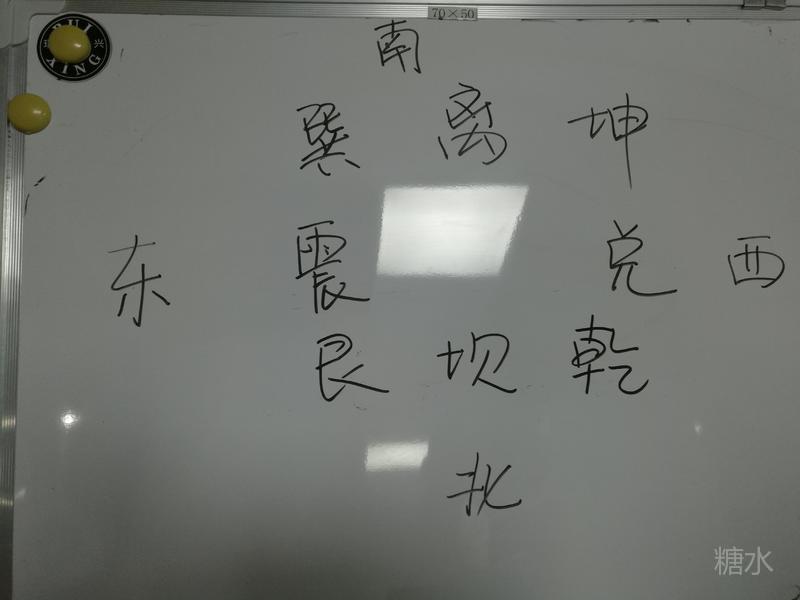 70×50
RUI
兴
YING
南
巽 离 坤
东 震 兑 西
艮 坎 乾
北
糖水